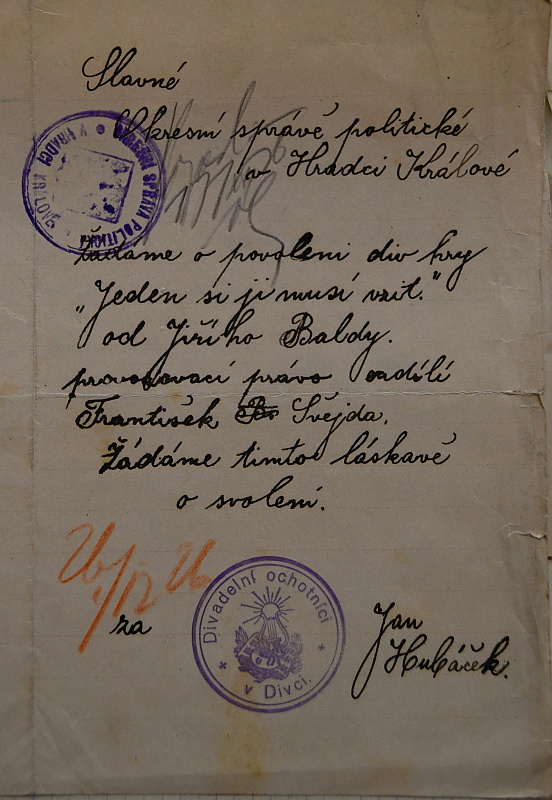 Slavné
Okresní správě politické
v Hradci Králové
OKRESNÍ SPRÁVA POLITICKÁ
V HRADCI KRÁLOVÉ
žádáme o povolení div hry
„Jeden si ji musí vzít."
od Jiřího Baldy.
provozovací právo oudílí
František Švejda.
Žádáme timto láskavě
o svolení.
26/12 26
za
Divadelní ochotníci
v Divci.
Jan
Hubáček.